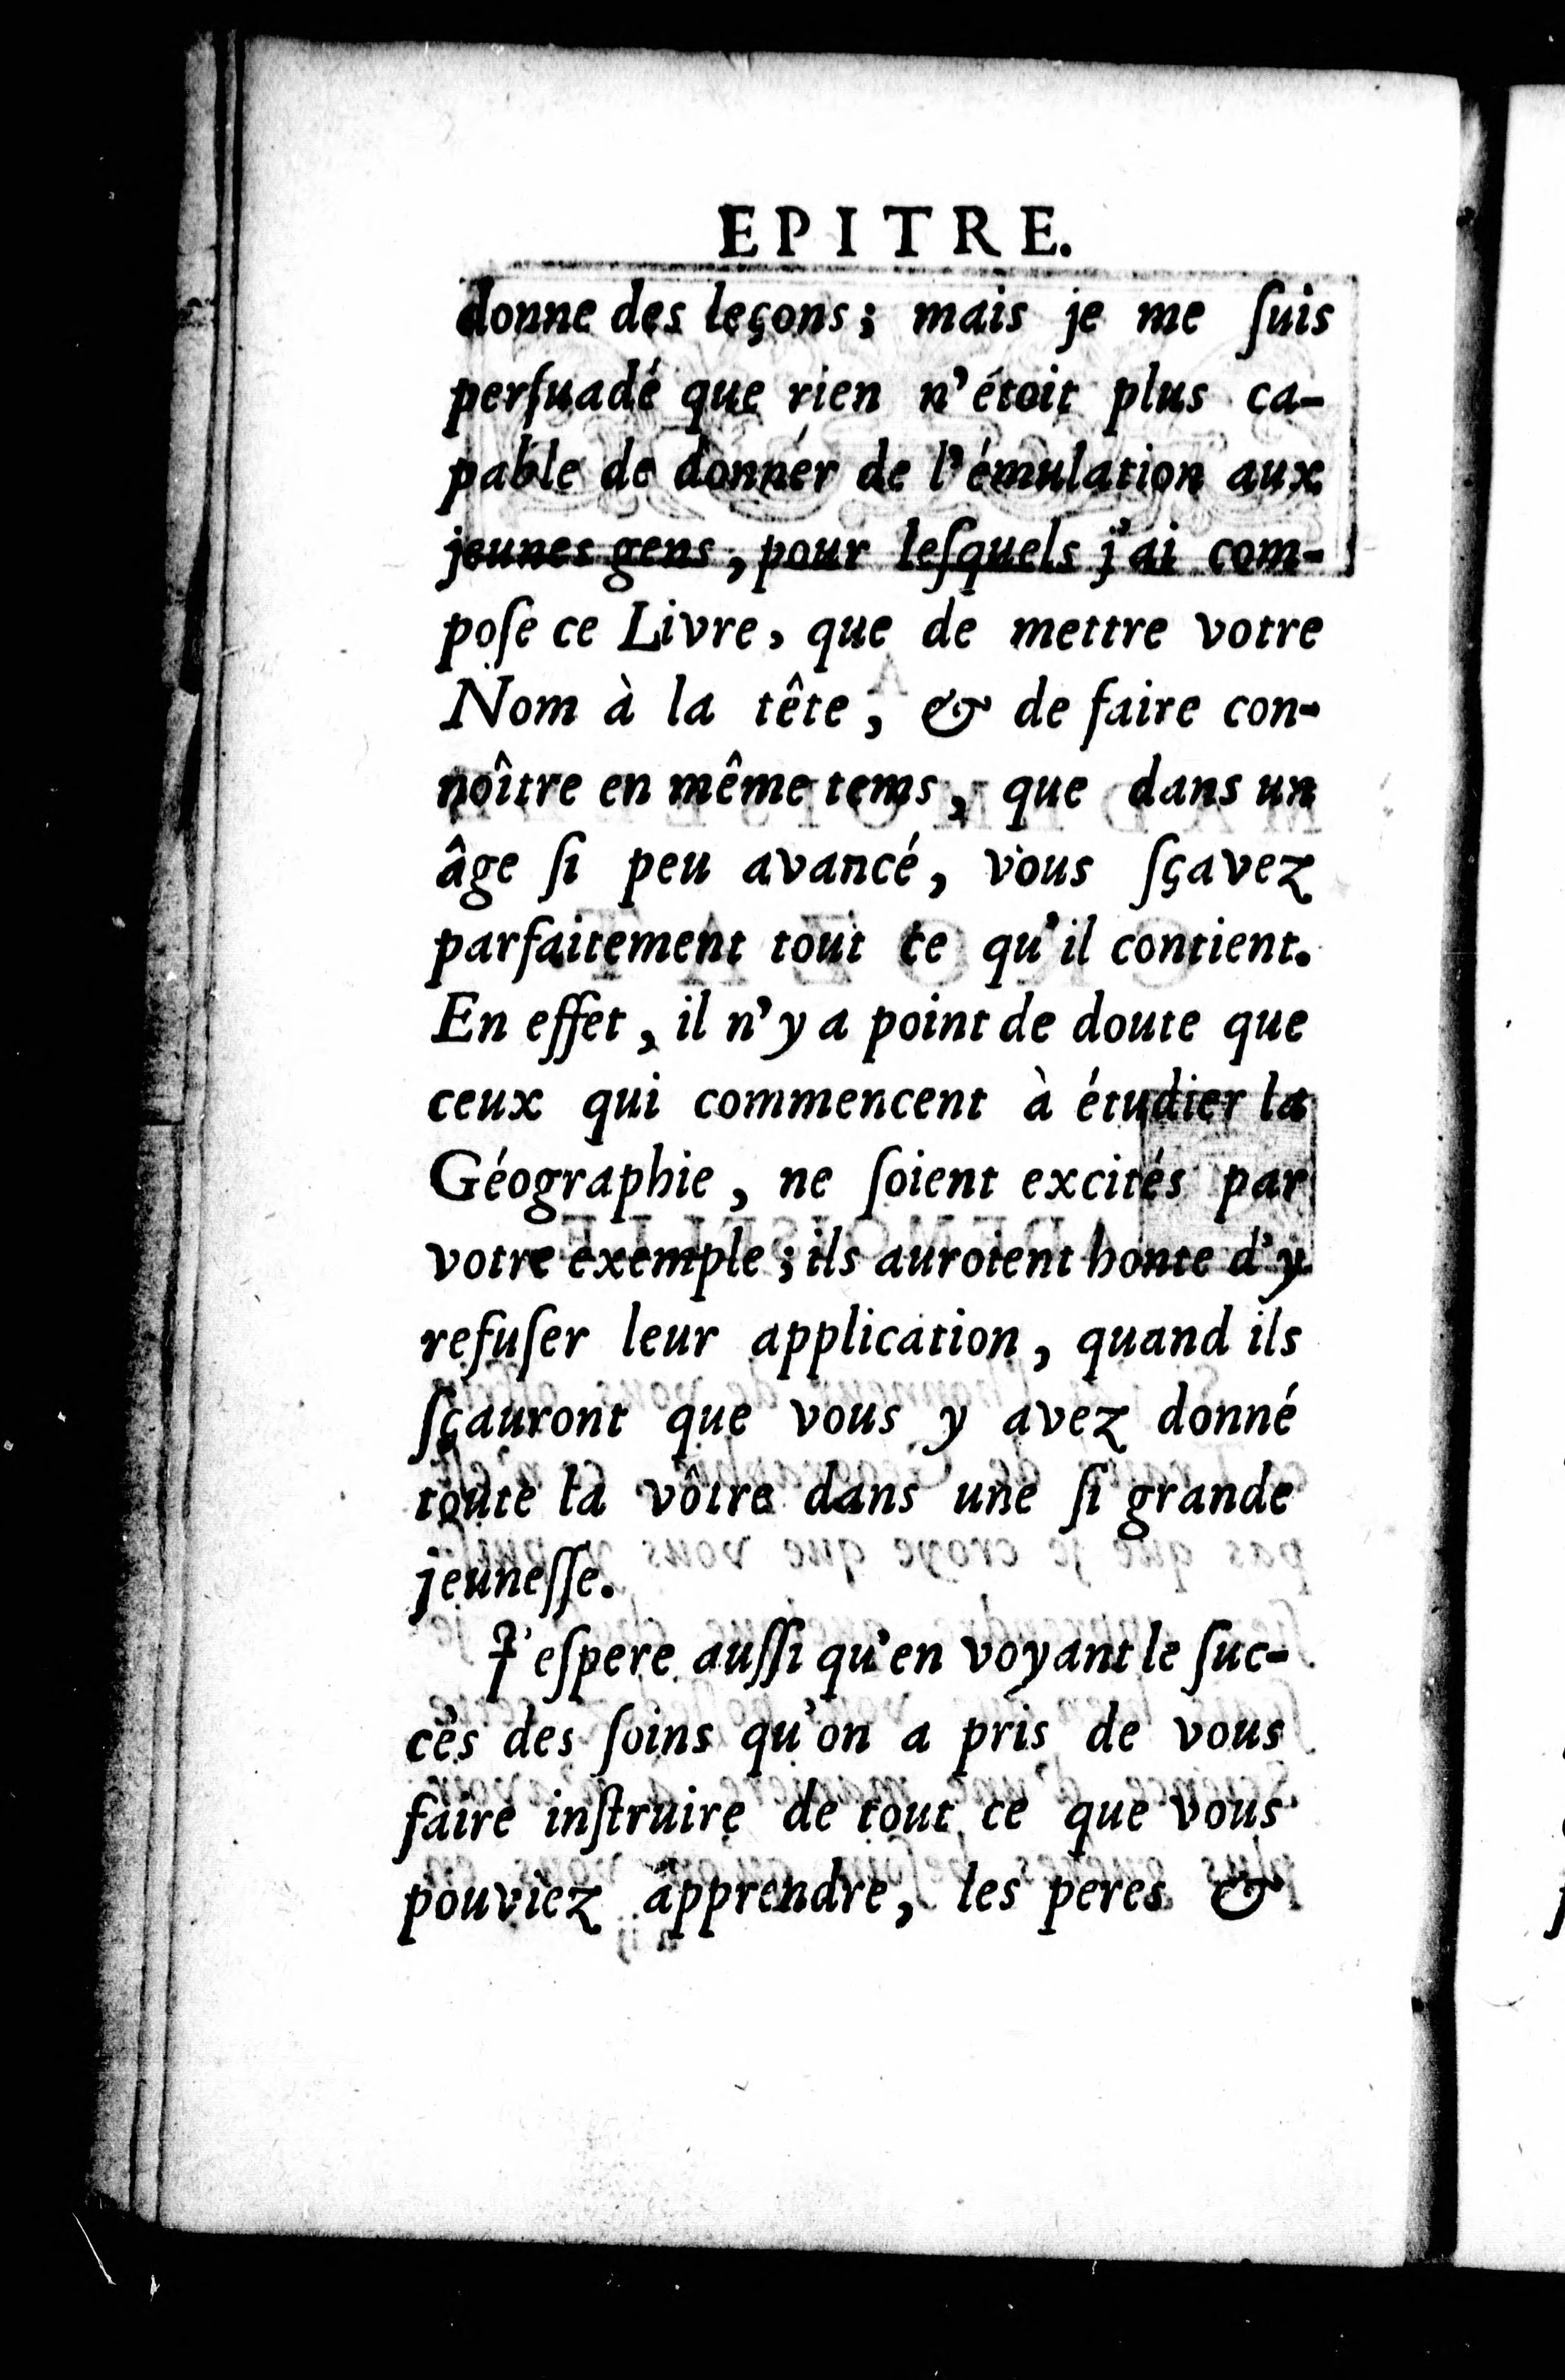 EPITRE.
donne des leçons; mais je me ſuis
perſuadé que rien n'étoit plus ca-
pable de donner de l'émulation aux
jeunes gens, pour leſquels j'ai com-
poſe ce Livre, que de mettre votre
Nom à la tête, & de faire con-
noître en même tems, que dans un
âge ſi peu avancé, vous ſçavez
parfaitement tout ce qu'il contient.
En effet, il n'y a point de doute que
ceux qui commencent à étudier la
Géographie, ne ſoient excités par
votre exemple; ils auroient honte d'y
refuſer leur application, quand ils
ſçauront que vous y avez donné
toute la vôtre dans une ſi grande
jeuneſſe.
J'eſpere auſſi qu'en voyant le ſuc-
cès des ſoins qu'on a pris de vous
faire inſtruire de tout ce que vous
pouviez apprendre, les peres &